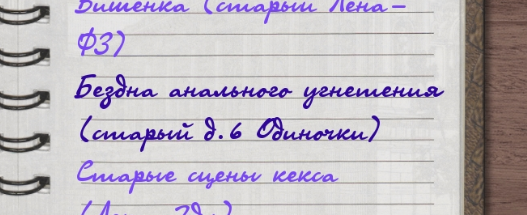 Вишенка (старый Лена-
ФЗ)
Бездна анального угнетения
(старый д.6 Одиночки)
Старые сцены кекса